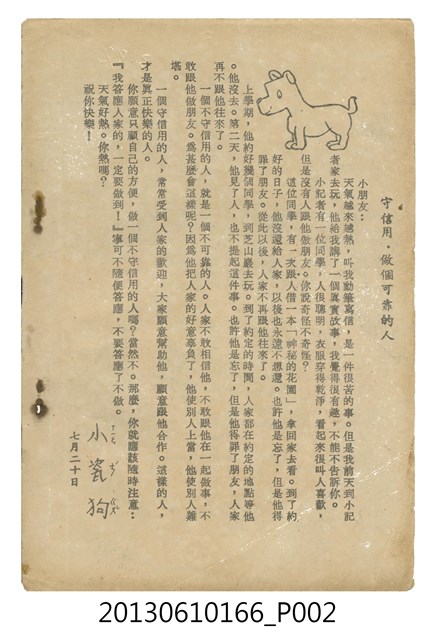 守信用・做個可靠的人
小朋友：
天氣越來越熱，叫我動筆寫信，是一件很苦的事。但是我前天到小記
者家去玩，他給我講了一個真實故事，我覺得很有趣，不能不告訴你。
小記者有一位同學，人很聰明，衣服穿得乾淨，看起來很叫人喜歡，
但是沒有人跟他做朋友。你說奇怪不奇怪？
這位同學，有一次跟人借一本「神秘的花園」，拿回家去看。到了約
好的日子，他沒還給人家，以後也永遠不想還。也許他是忘了，但是他得
罪了朋友。從此以後，人家不再跟他來往了。
上學期，他約好幾個同學，到芝山巖去玩。到了約定的時間，人家都在約定的地點等他
。他沒去。第二天，他見了人，也不提起這件事。也許他是忘了，但是他得罪了朋友，人家
再不跟他往來了。
一個不守信用的人，就是一個不可靠的人。人家不敢相信他，不敢跟他在一起做事，不
敢跟他做朋友。爲甚麼會這樣呢？因爲他把人家的好意辜負了，他使別人上當，他使別人難
堪。
一個守信用的人，常常受到人家的歡迎，大家願意幫助他，願意跟他合作。這樣的人，
才是眞正快樂的人。
你願意只顧自己的方便，做一個不守信用的人嗎？當然不。那麼，你就應該隨時注意：
『我答應人家的，一定要做到！』寧可不隨便答應，不要答應了不做。
天氣好熱。你熱嗎？
祝你快樂！
小瓷狗
七月二十日
20130610166_P002